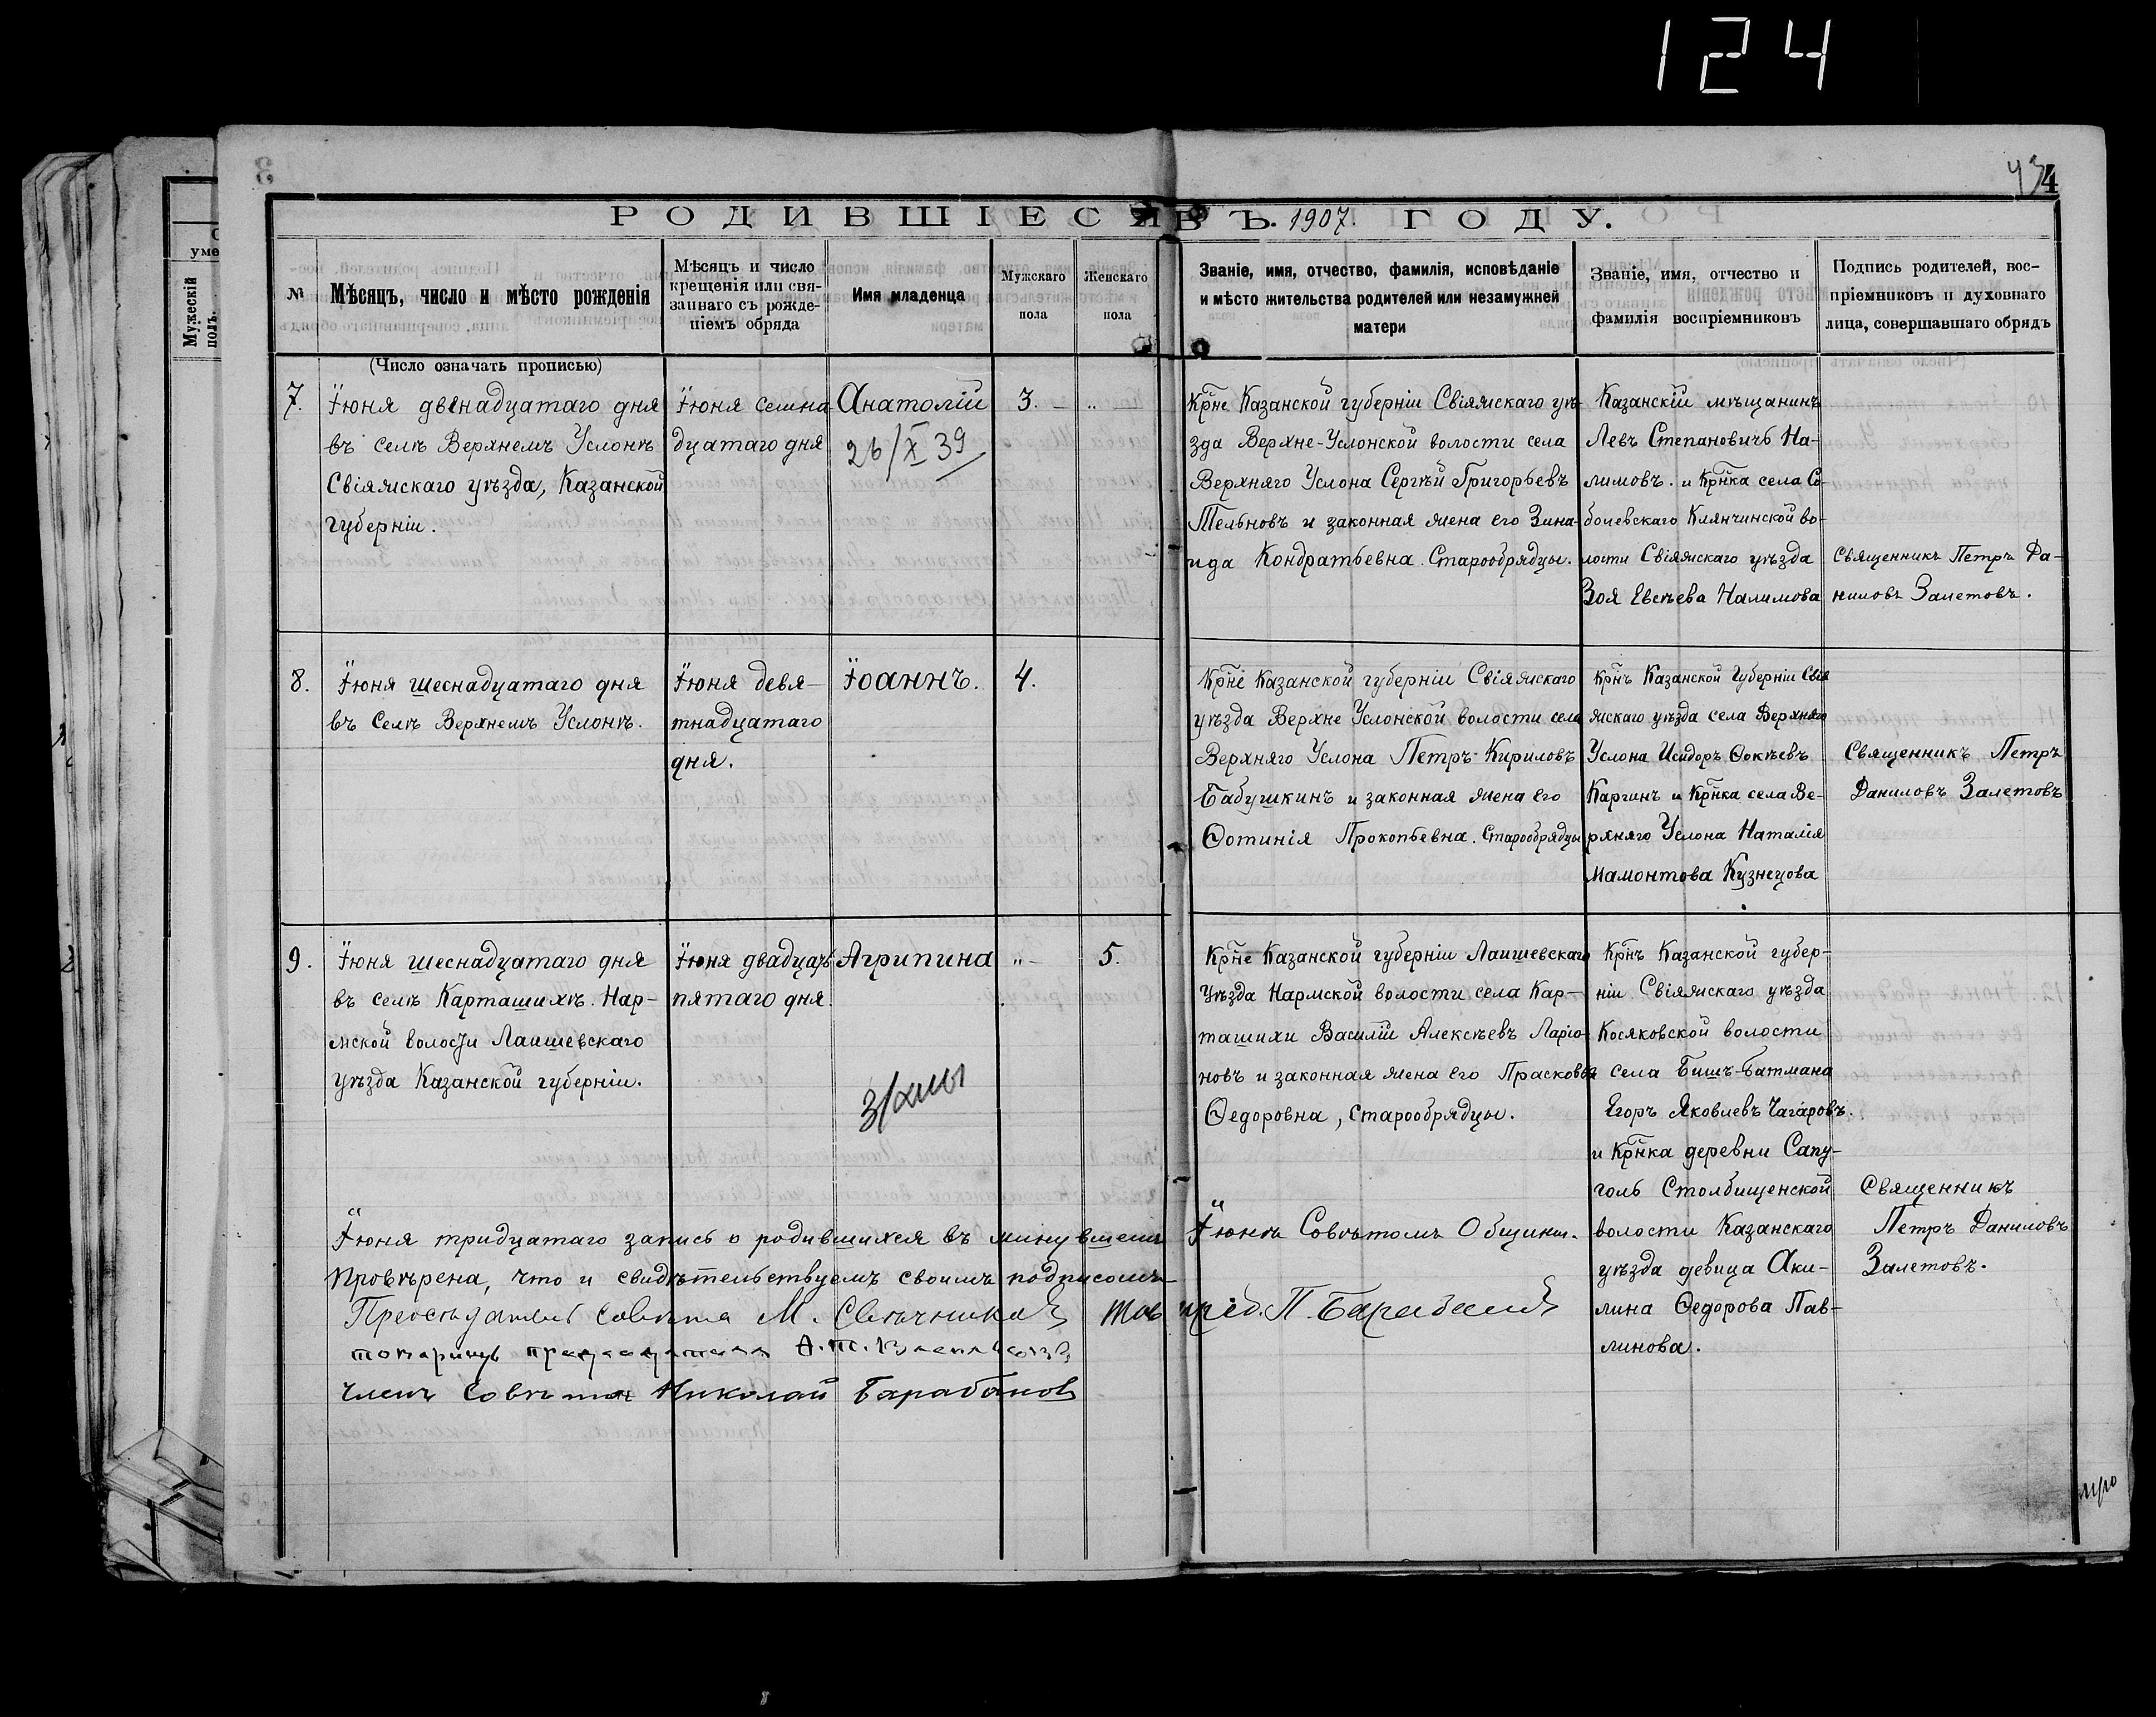 124
434
РОДИВШІЕСЯ ВЪ 1907. ГОДУ.
№
Мѣсяцъ, число и мѣсто рожденія
Мѣсяцъ и число
крещенія или свя-
заннаго съ рожде-
ніемъ обряда
Имя младенца
Мужскаго
пола
Женскаго
пола
Званіе, имя, отчество, фамилія, исповѣданіе
и мѣсто жительства родителей или незамужней
матери
Званіе, имя, отчество и
фамилія воспріемниковъ
Подпись родителей, вос-
пріемниковъ и духовнаго
лица, совершавшаго обрядъ
Мужескій
полъ.
уме
(Число означать прописью)
7.
Іюня двѣнадцатаго дня
въ селѣ Верхнемъ Услонѣ
Свіяжскаго уѣзда, Казанской
губерніи.
Іюня семна-
дцатаго дня
Анатолій
26/X 39
3. —
„ —
Крн̃е Казанской губерніи Свіяжскаго уѣ-
зда Верхне-Услонской волости села
Верхняго Услона Сергѣй Григорьевъ
Тельновъ и законная жена его Зина-
ида Кондратьевна. Старообрядцы.
Казанскій мѣщанинъ
Левъ Степановичъ На-
лимовъ. и Крн̃ка села Со-
болевскаго Клянчинской во-
лости Свіяжскаго уѣзда
Зоя Евсѣева Налимова
Священникъ Петръ Да-
ниловъ Залетовъ.
8.
Іюня шеснадцатаго дня
въ Селѣ Верхнемъ Услонѣ.
Іюня девя-
тнадцатаго
дня.
Іоаннъ.
4.
Крн̃е Казанской губерніи Свіяжскаго
уѣзда Верхне Услонской волости села
Верхняго Услона Петръ Кириловъ
Бабушкинъ и законная жена его
Ѳотинія Прокопьевна. Старообрядцы
Крн̃ъ Казанской Губерніи Свія
жскаго уѣзда села Верхняго
Услона Исидоръ Ѳокѣевъ
Каргинъ и Крн̃ка села Ве-
рхняго Услона Наталія
Мамонтова Кузнецова
Священникъ Петръ
Даниловъ Залетовъ
9.
Іюня шеснадцатаго дня
въ селѣ Карташихѣ. Нар-
мской волости Лаишевскаго
уѣзда Казанской губерніи.
Іюня двадцать
пятаго дня.
Агрипина
„ —
5.
Крн̃е Казанской губерніи Лаишевскаго
Уѣзда Нармской волости села Кар-
ташихи Василій Алексѣевъ Ларіо-
новъ и законная жена его Прасковья
Ѳедоровна, Старообрядцы.
Крн̃ъ Казанской губер-
ніи Свіяжскаго уѣзда
Косяковской волости
села Бишъ-Батмана
Егоръ Яковлевъ Чагаровъ.
и Крн̃ка деревни Сапу-
голь Столбищенской
волости Казанскаго
уѣзда девица Аки-
лина Ѳедорова Пав-
линова.
Священникъ
Петръ Даниловъ
Залетовъ.
Іюня тридцатаго запись о родившихся въ минувшемъ Іюнѣ Совѣтомъ Общины.
провѣрена, что и свидѣтельствуемъ своимъ подписомъ
Предсѣдатель совѣта М. Свѣчниковъ Тов пред. П. Барабановъ
товарищъ
Членъ Совѣта Николай Барабановъ